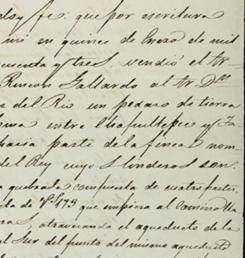 doy fe: que por escritura
mi en quince de Enero de mil
cuenta y tres, vendió el Sr.
Rincon Gallardo al Sr. Dn
del Rio un pedazo de tierra
entre Chapultepec y Ta
baria parte de la finca nom
del Rey cuyos linderos son:
quebrada compuesta de cuatro partes,
la de Vs 173 que empieza al camino
ras, atravesando el aqueducto de la
al Sur del punto del mismo aqueducto